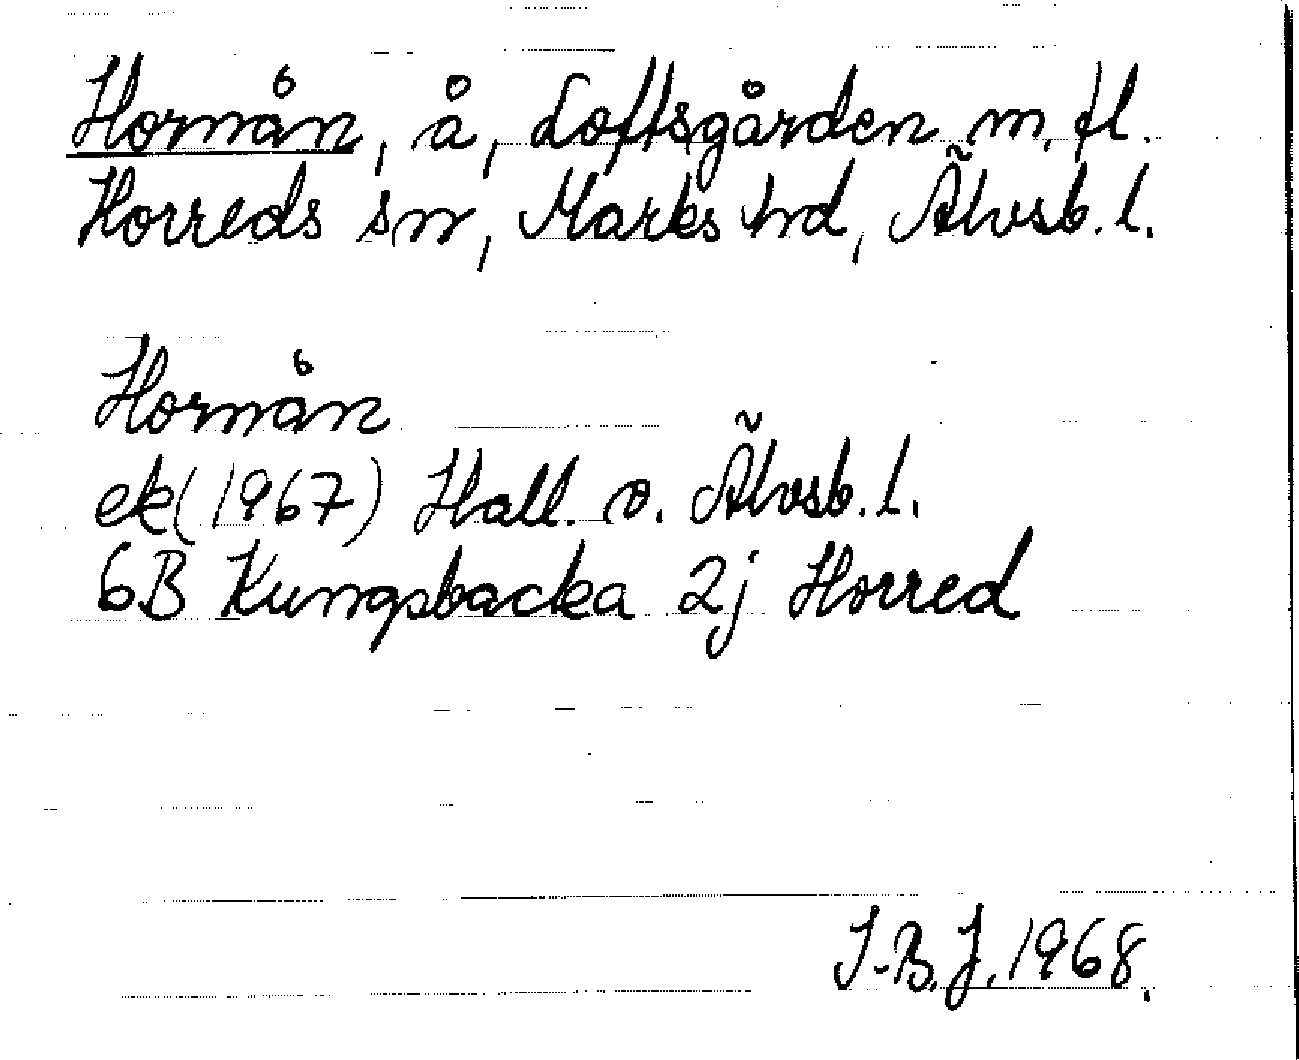 Hornån, å, Loftsgården m. fl.
Horreds sn, Marks hd, Älvsb. l.
Hornån
ek (1967) Hall. o. Älvsb. l.
6B Kungsbacka 2j Horred
I-B.J. 1968.